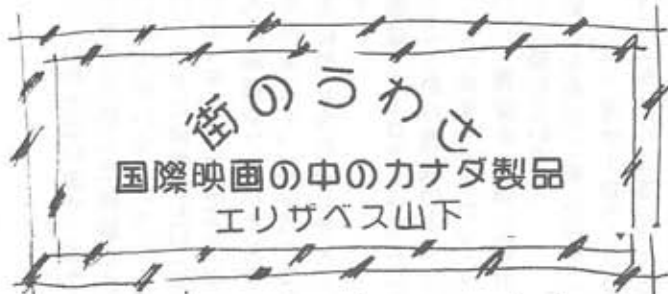 街のうわさ
国際映画の中のカナダ製品
エリザベス山下